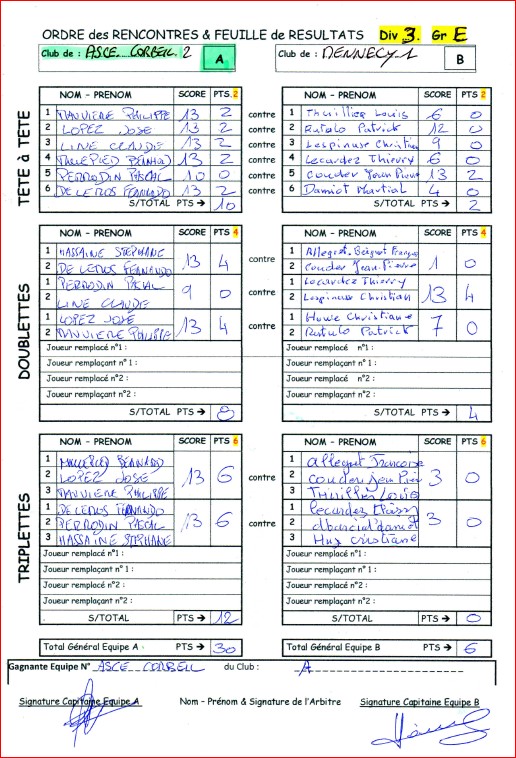 ORDRE des RENCONTRES & FEUILLE de RESULTATS Div 3. Gr E
Club de : ASCE CORBEIL 2 A Club de : MENNECY 1 B
TETE à TETE
NOM - PRENOM SCORE PTS.2 NOM - PRENOM SCORE PTS 2
1 PHILIPPE 13 2 contre 1 Thuillier Louis 6 0
2 LOPEZ JOSE 13 2 contre 2 Rutalo Patrick 12 0
3 LINE CLAUDE 13 2 contre 3 Lespinasse Christian 9 0
4 13 2 contre 4 Lecardez Thierry 6 0
5 PERRODIN PASCAL 10 0 contre 5 Couder Jean Pierre 13 2
6 DE LEMOS FERNANDO 13 2 contre 6 Damiot Martial 4 0
S/TOTAL PTS → 10 S/TOTAL PTS → 2
DOUBLETTES
NOM - PRENOM SCORE PTS 4 NOM - PRENOM SCORE PTS 4
1 HASSAINE STEPHANE 13 4 contre 1 Allegret 1 0
2 DE LEMOS FERNANDO 2 Couder Jean Pierre
1 PERRODIN PASCAL 9 0 contre 1 Lecardez Thierry 13 4
2 LINE CLAUDE 2 Lespinasse Christian
1 LOPEZ JOSE 13 4 contre 1 Christiane 7 0
2 PHILIPPE 2 Rutalo Patrick
Joueur remplacé n°1 : Joueur remplacé n°1 :
Joueur remplaçant n° 1 : Joueur remplaçant n° 1 :
Joueur remplacé n°2 : Joueur remplacé n°2 :
Joueur remplaçant n°2 : Joueur remplaçant n°2 :
S/TOTAL PTS → 8 S/TOTAL PTS → 4
TRIPLETTES
NOM - PRENOM SCORE PTS 6 NOM - PRENOM SCORE PTS 6
1 BERNARD 13 6 contre 1 3 0
2 LOPEZ JOSE 2
3 PHILIPPE 3 Thuillier Louis
1 DE LEMOS FERNANDO 13 6 contre 1 3 0
2 PERRODIN PASCAL 2
3 HASSAINE STEPHANE 3
Joueur remplacé n°1 : Joueur remplacé n°1 :
Joueur remplaçant n° 1 : Joueur remplaçant n° 1 :
Joueur remplacé n°2 : Joueur remplacé n°2 :
Joueur remplaçant n°2 : Joueur remplaçant n°2 :
S/TOTAL PTS → 12 S/TOTAL PTS → 0
Total Général Equipe A PTS → 30 Total Général Equipe B PTS → 6
Gagnante Equipe N° ASCE CORBEIL du Club : A
Signature Capitaine Equipe A Nom - Prénom & Signature de l'Arbitre Signature Capitaine Equipe B